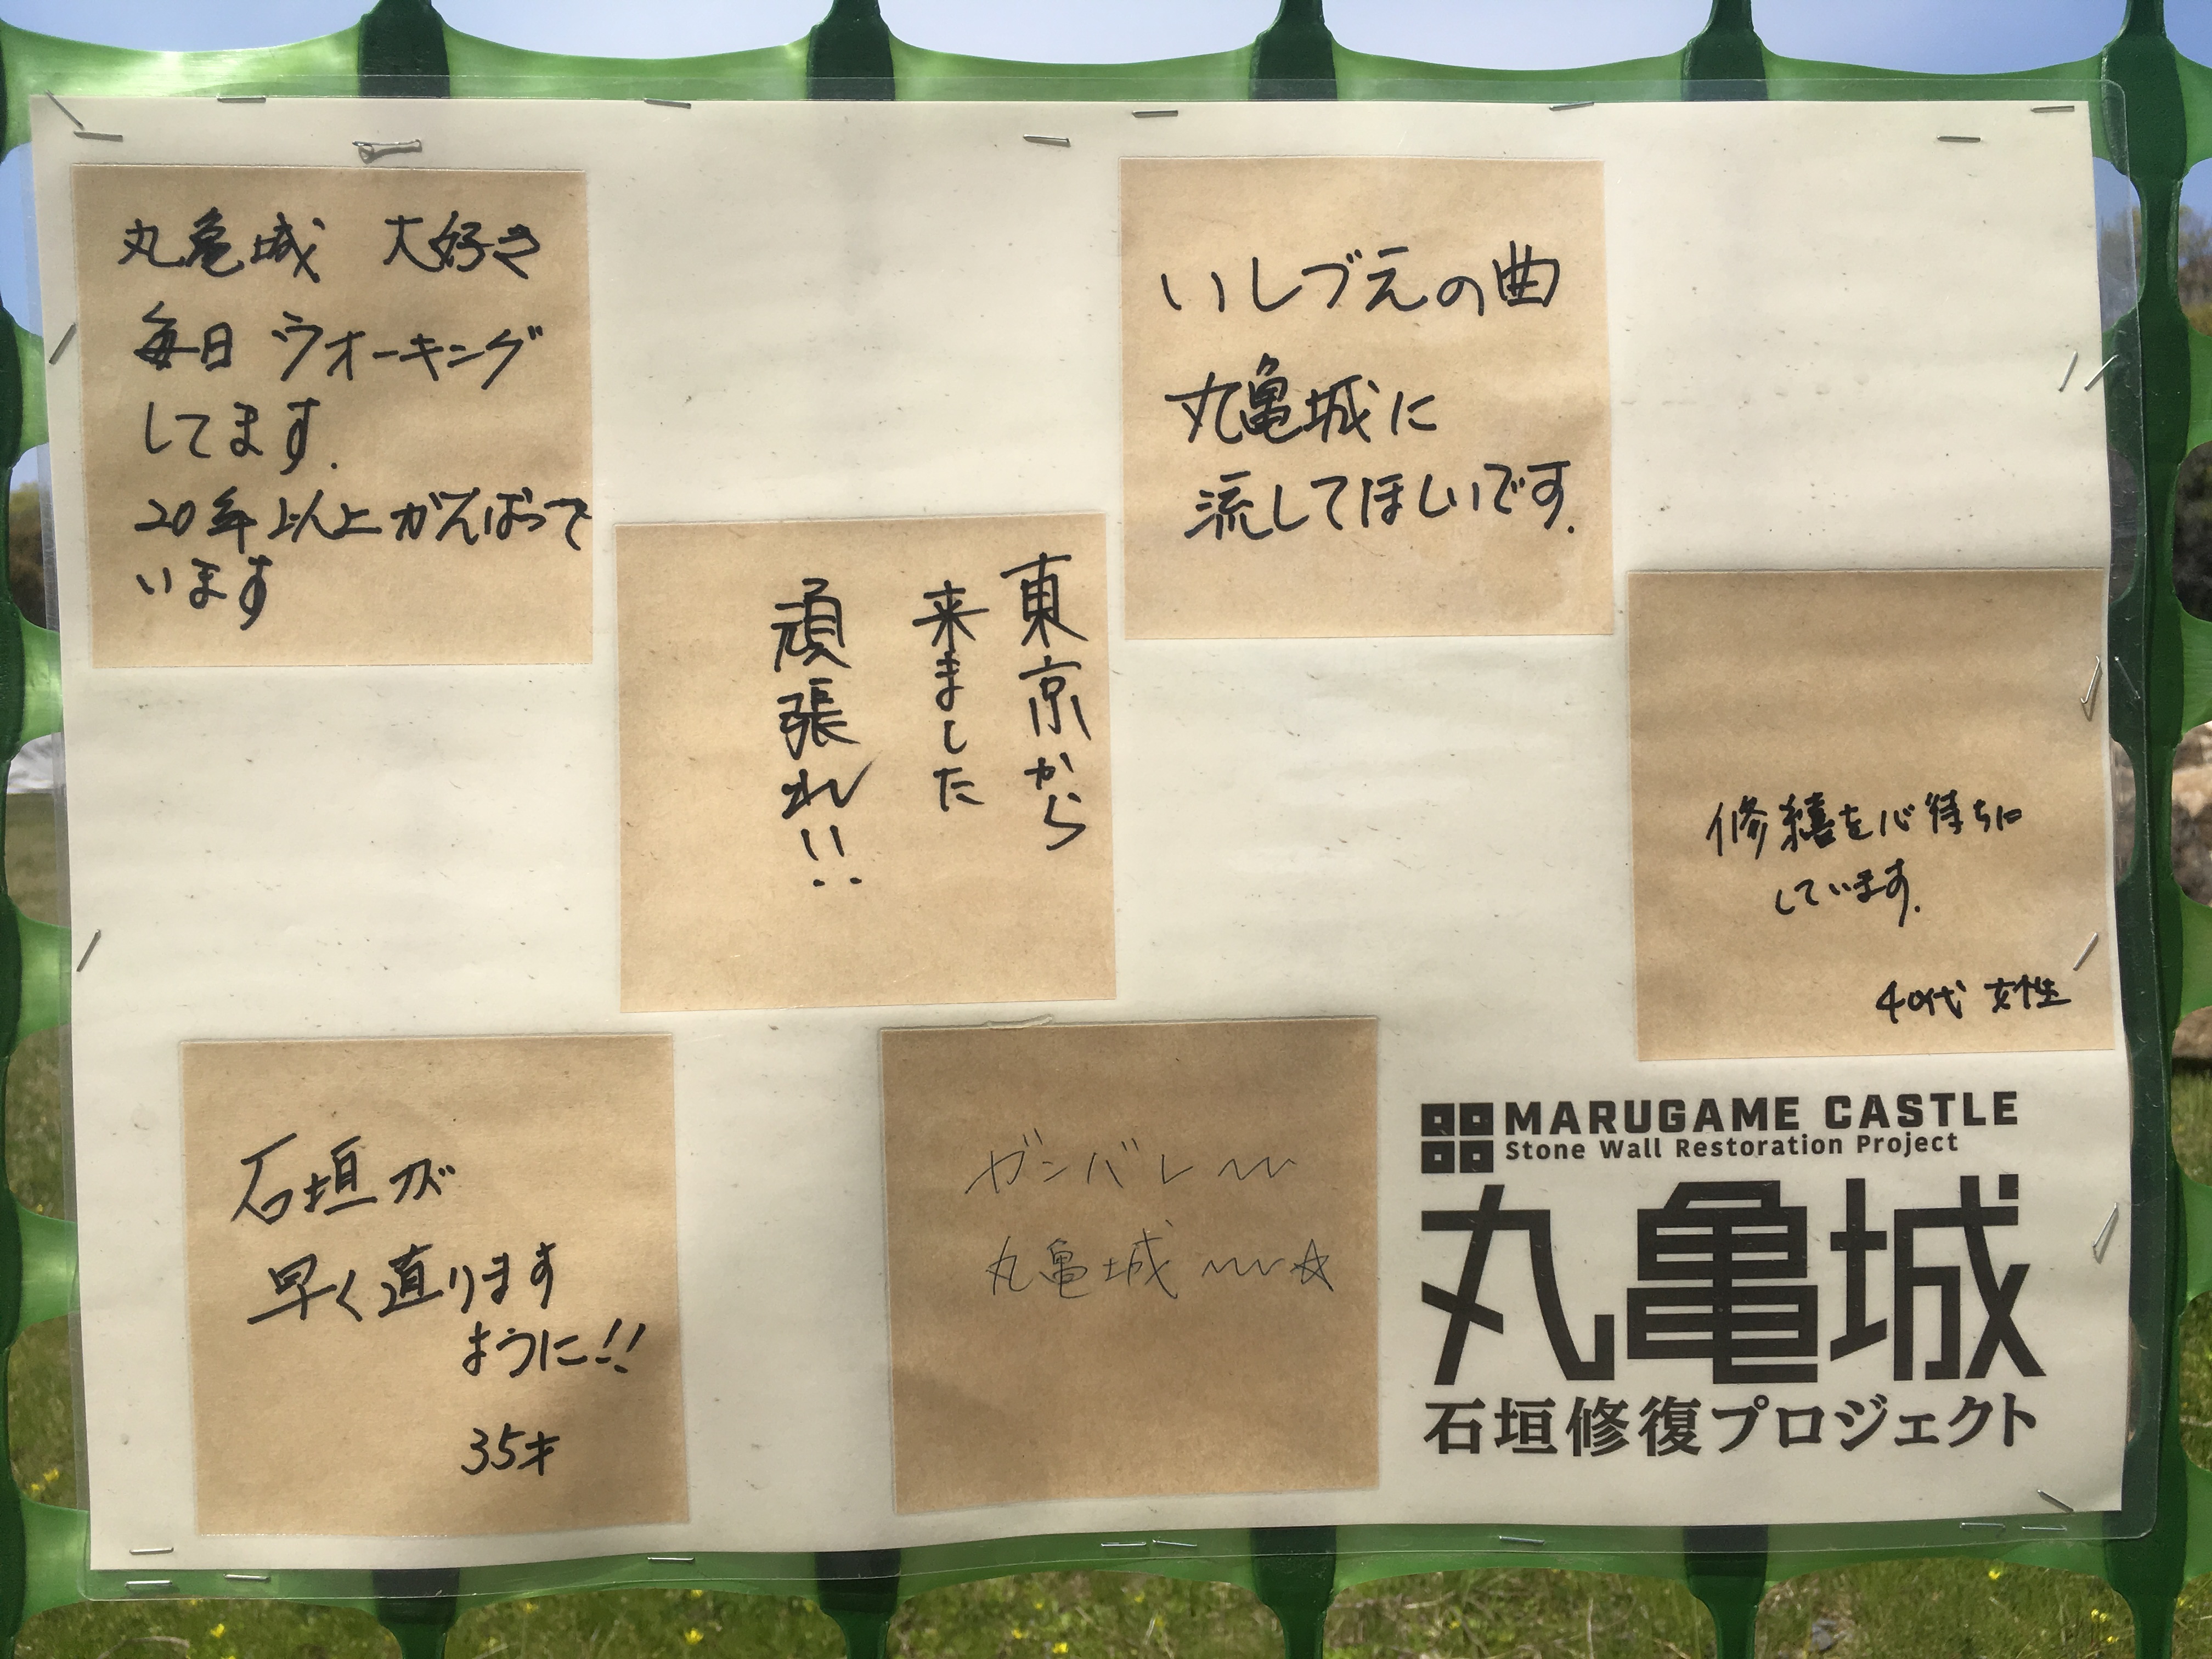 丸亀城 大好き
毎日 ウオーキング
してます.
20年以上がんばって
います
いしづえの曲
丸亀城に
流してほしいです.
東京から
来ました
頑張れ!!
修繕を心待ちに
しています.
40代 女性
石垣が
早く直ります
ように!!
35才
ガンバレ〜〜
丸亀城〜〜☆
MARUGAME CASTLE
Stone Wall Restoration Project
丸亀城
石垣修復プロジェクト